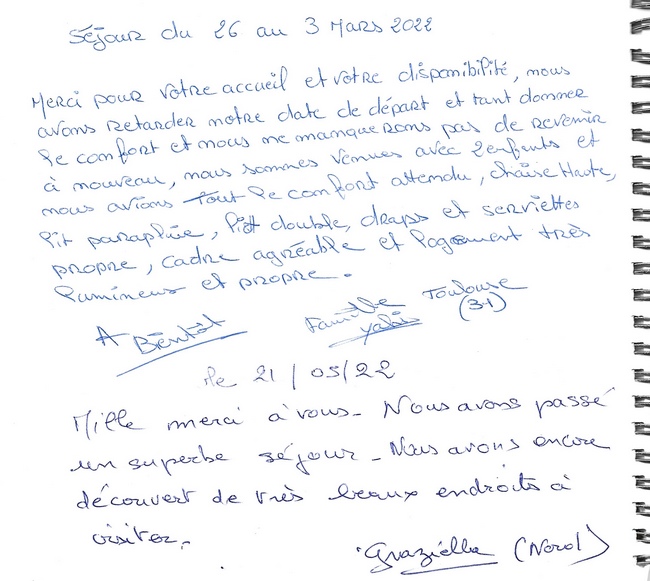 Séjour du 26 au 3 Mars 2022
Merci pour votre accueil et votre disponibilité, nous
avons retarder notre date de départ et tant donner
le confort et nous ne manquerons pas de revenir
à nouveau, nous sommes venues avec 2 enfants et
nous avions tout le confort attendu, chaise Haute,
lit parapluie, lit double, draps et serviettes
propre, cadre agréable et logement très
lumineux et propre.
A Bientôt
Famille Toulouse
(31)
le 21/05/22
Mille merci à vous - Nous avons passé
un superbe séjour - Nous avons encore
découvert de très beaux endroits à
visiter.
Graziella (Nord)